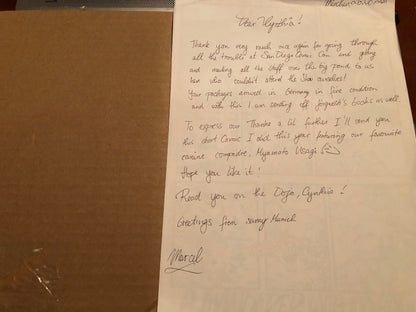 Dear Cynthia!
Thank you very much once again for going through
all the trouble at San Diego Comic Con and getting
and mailing all the stuff over the big pond to us
fans who couldn't attend the Show ourselves!
Your packages arrived in Germany in fine condition
and with this I am sending off books as well.
To express our Thanks a lil further I'll send you
this short Comic I did this year featuring our favourite
compadre, Miyamoto Usagi
Hope you like it!
Read you on the Dojo, Cynthia!
Greetings from sunny Munich
Marcel